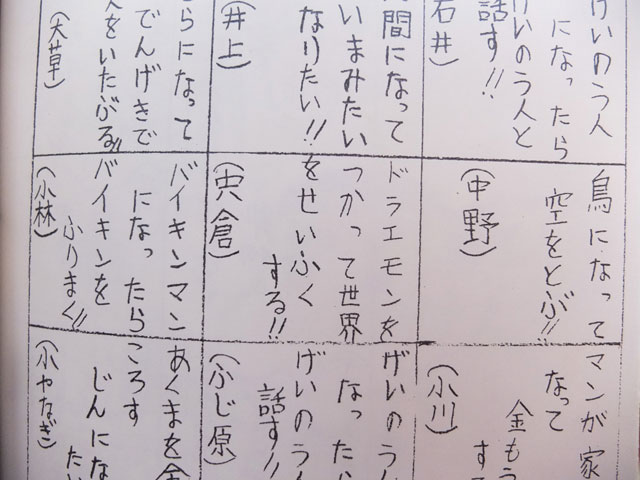 げいのう人
になったら
げいのう人と
話す!!
石井)
人間になって
いまみたい
なりたい!!
(井上)
らになって
でんげきで
人をいたぶる!!
(大草)
鳥になって
空をとぶ!!
(中野)
ドラエモンを
つかって世界
をせいふく
する!!
(宍倉)
バイキンマン
になったら
バイキンを
ふりまく!!
(小林)
マンが家
なって
金もう
す
(小川)
げいのう人
なったら
げいのう人
話す!!
(ふじ原)
あくまを全
ころす
じんにな
たい
(小やなぎ)